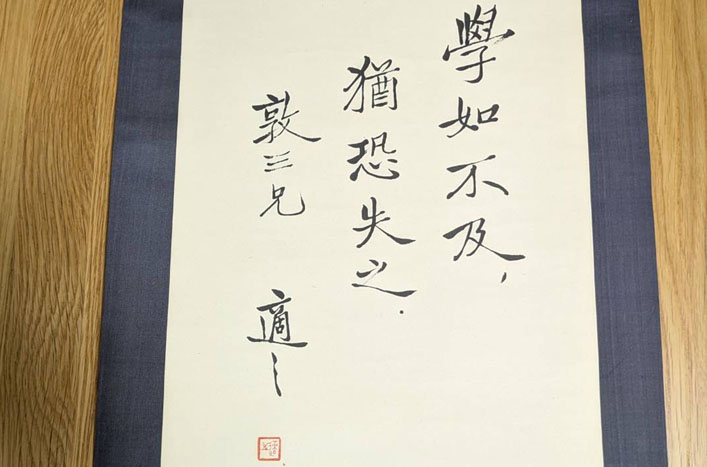 學如不及，
猶恐失之.
敦三兄
適之